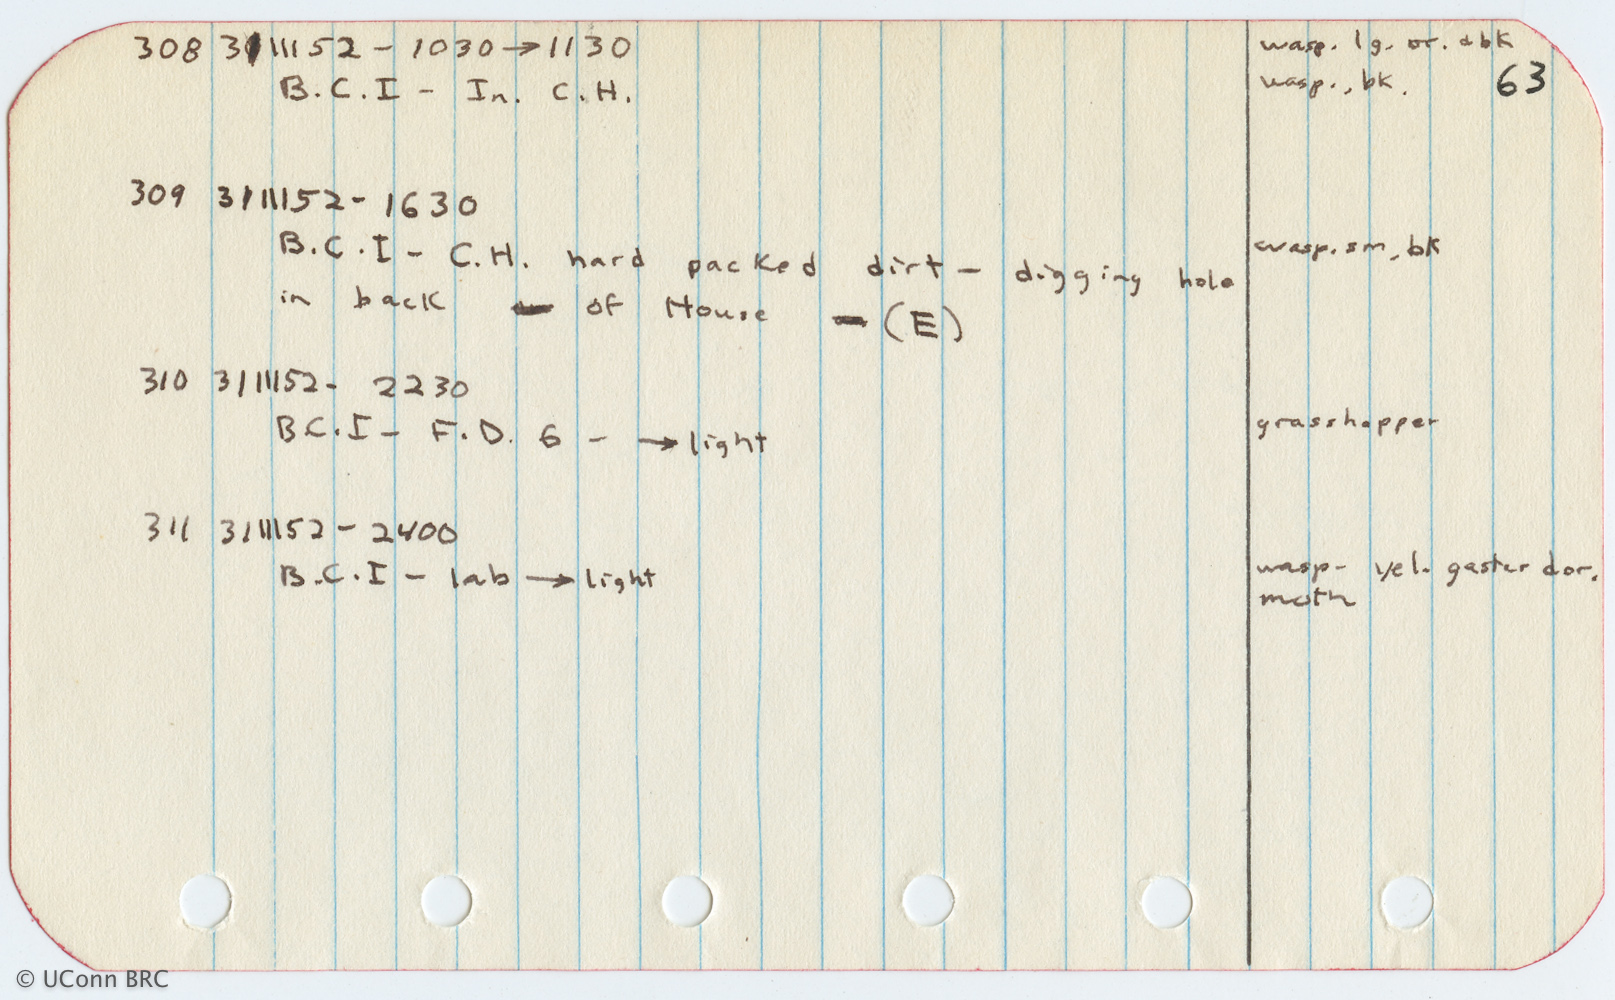 308 31III52 - 1030 → 1130 wasp. lg. or. & bk
B.C.I - In. C.H. wasp., bk. 63
309 31III52 - 1630
B.C.I - C.H. hard packed dirt - digging hole wasp. sm, bk
in back of House - (E)
310 31III52 - 2230
B.C.I - F.D. 6 - → light grasshopper
311 31III52 - 2400
B.C.I - lab → light wasp - yel. gaster dor.
moth
© UConn BRC